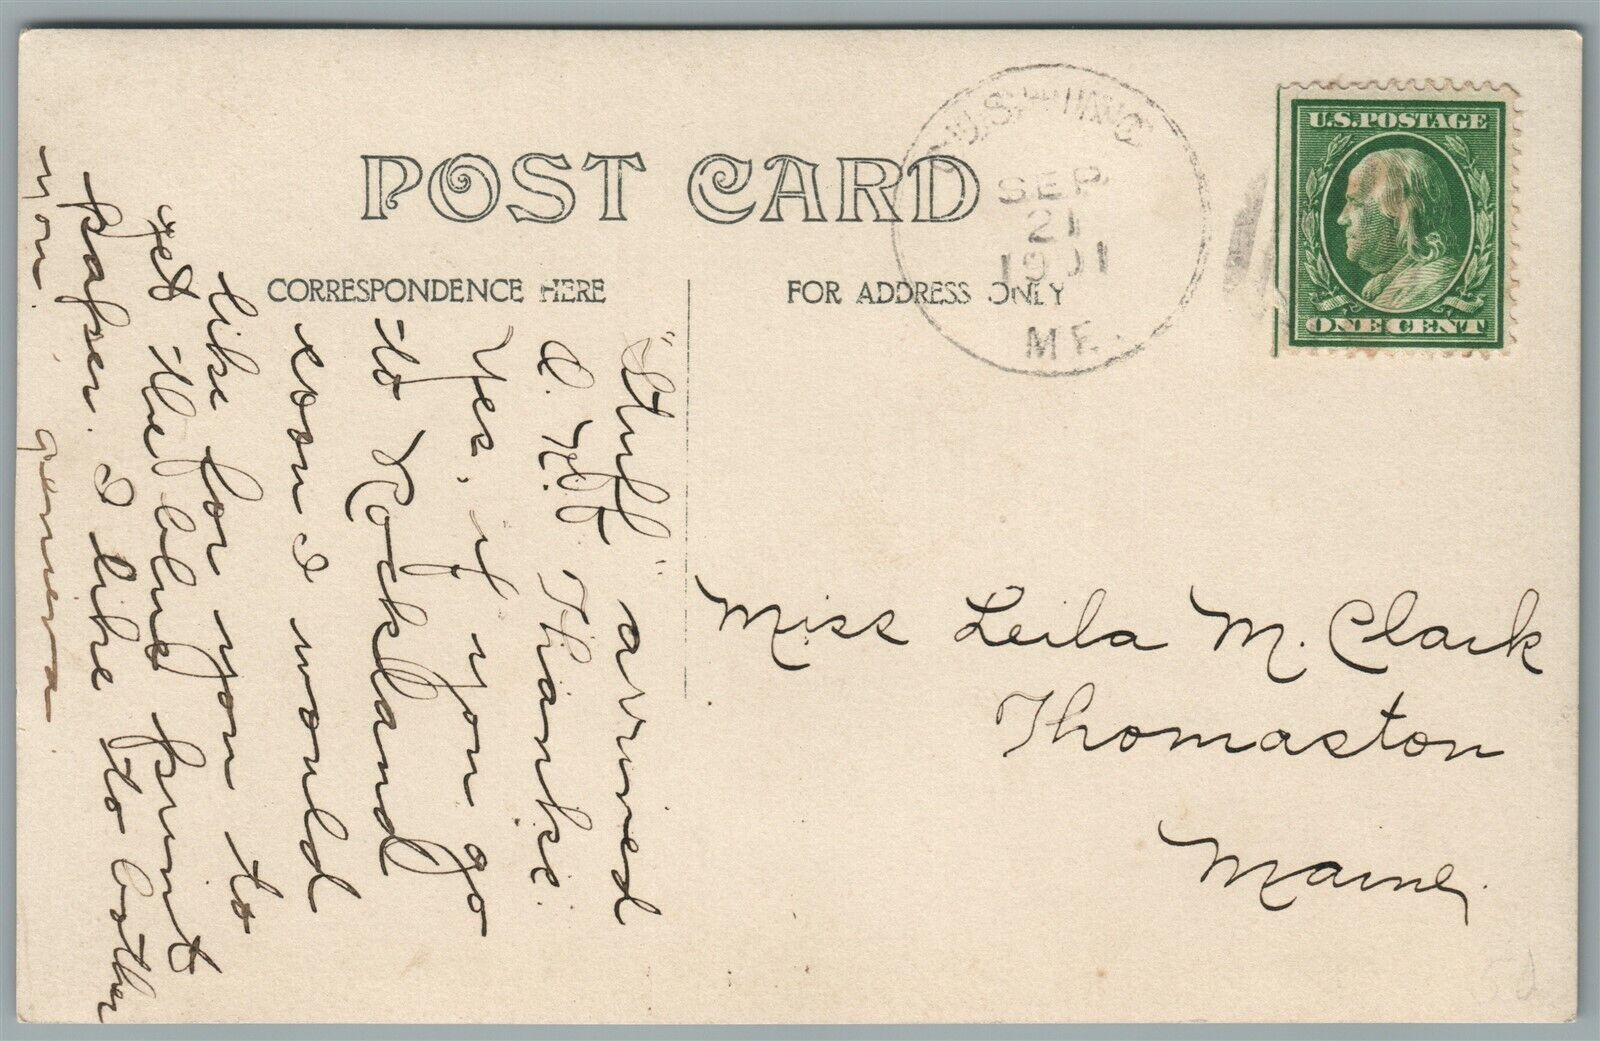 POST CARD
CORRESPONDENCE HERE
FOR ADDRESS ONLY
CUSHING
SEP
21
ME.
U.S. POSTAGE
ONE CENT
"Stuff" arrived
O. K. Thanks.
Yes, if you go
to Rockland
soon I would
like for you to
get the blue print
paper. I like to bother
you. Geneva
Miss Leila M. Clark
Thomaston
Maine.